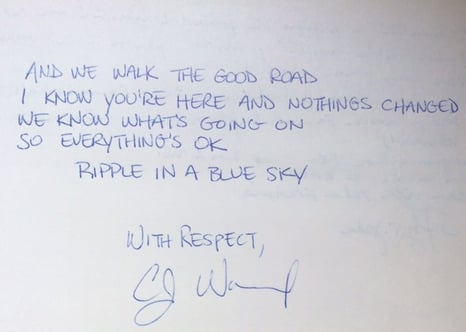 AND WE WALK THE GOOD ROAD
I KNOW YOU'RE HERE AND NOTHINGS CHANGED
WE KNOW WHAT'S GOING ON
SO EVERYTHING'S OK
RIPPLE IN A BLUE SKY
WITH RESPECT,
CJ